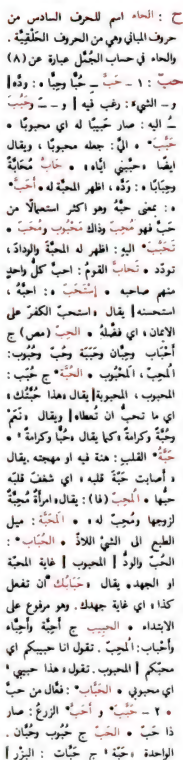 ح : الحاء اسم للحرف السادس من
حروف المباني وهي من الحروف الحَلْقِيَّة .
والحاء في حساب الجُمَّل عبارة عن (٨)
حبّ : ١ - حَبَّ ـِ حُبًّا وحِبًّا ه : ودَّهُ |
و - الشيءَ : رغب فيه | و - ـَ وحَبُبَ
ـُ اليه : صار حَبيبًا له اي محبوبًا •
حَبَّبَ ه اليَّ : جعله محبوبًا ، ويقال
ايضًا «حبَّبني ايّاه» • حَابَّ مُحَابَّةً
وحِبَابًا ه : وَدَّه ، اظهر المحبَّة له • أَحَبَّ
ه : بمعنى حبَّهُ وهو اكثر استعمالًا من
حَبَّ فهو مُحِب وذاك مَحْبُوب ومُحَب •
تَحَبَّبَ اليه : اظهر له المحبَّة والودادَ ،
تودّد • تَحَابَّ القومُ : احبَّ كلُّ واحدٍ
منهم صاحبه • إِسْتَحَبَّ ه : احبَّهُ ،
استحسنه | يقال «استحبَّ الكفرَ على
الايمان» اي فضَّلهُ • الحِبّ (مص) ج
أَحْبَاب وحِبَّان وحَبَبَة وحُبّ وحُبُوب :
المُحِبّ ، المَحْبُوب • الحُبَّة ج حُبَب :
المحبوب ، المحبوبة | يقال «هذا حُبَّتُك»
اي ما تحبُّ ان تُعطاه | ويقال «نَعَمْ
وحُبَّةً وكرامةً» كما يقال «حُبًّا وكرامةً» •
حَبَّةُ القلب : هنة فيه او مهجته . يقال
«أصابت حَبَّةَ قلبه» اي شغفَ قلبَه
حبُّها • المُحِبّ (فا) : يقال «امرأةٌ مُحِبَّةٌ
لزوجها ومُحِبّ له» • المَحَبَّة : ميل
الطبع الى الشيْ اللاذّ • الحُبَاب :
الحُبّ والودُّ | المحبوب | غاية المحبَّة
او الجهد . يقال «حَبَابُكَ أن تفعل
كذا» اي غاية جهدك . وهو مرفوع على
الابتداء • الحَبِيب ج أَحِبَّة وأَحِبَّاء
وأَحْبَاب : المُحِبّ . تقول انا حبيبكم اي
محبّكم | المحبوب . تقول «هذا حبيبي»
اي محبوبي • الحَبَّاب : فَعَّال من حبَّ
• ٢ - حَبَّبَ و أَحَبَّ الزرعُ : صار
ذا حَبّ • الحَبّ ج حُبُوب وحُبَّان .
الواحدة «حَبَّة» ج حَبَّات : البزر |